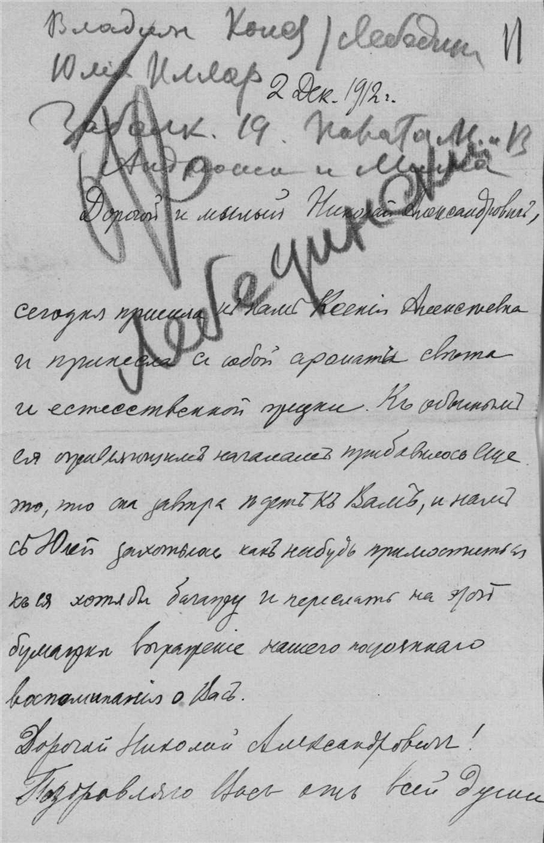 Владим Конст / Лебедин
Юлія
2 Дек. 1912 г.
Забалк. 19.
и
Лебединский
Дорогой и милый Николай Александровичъ,
сегодня пришла къ намъ Ксенія Алексѣевна
и принесла съ собой ароматы свѣта
и естественной. Къ обычнымъ
ея началамъ прибавилось еще
то, что она завтра ѣдетъ къ Вамъ, и намъ
съ Юлей захотѣлось какъ нибудь примоститься
къ ея хотя бы багажу и переслать на этой
бумажкѣ выраженіе нашего
воспоминанія о Васъ.
Дорогой Николай Александровичъ!
Поздравляю Васъ отъ всей души